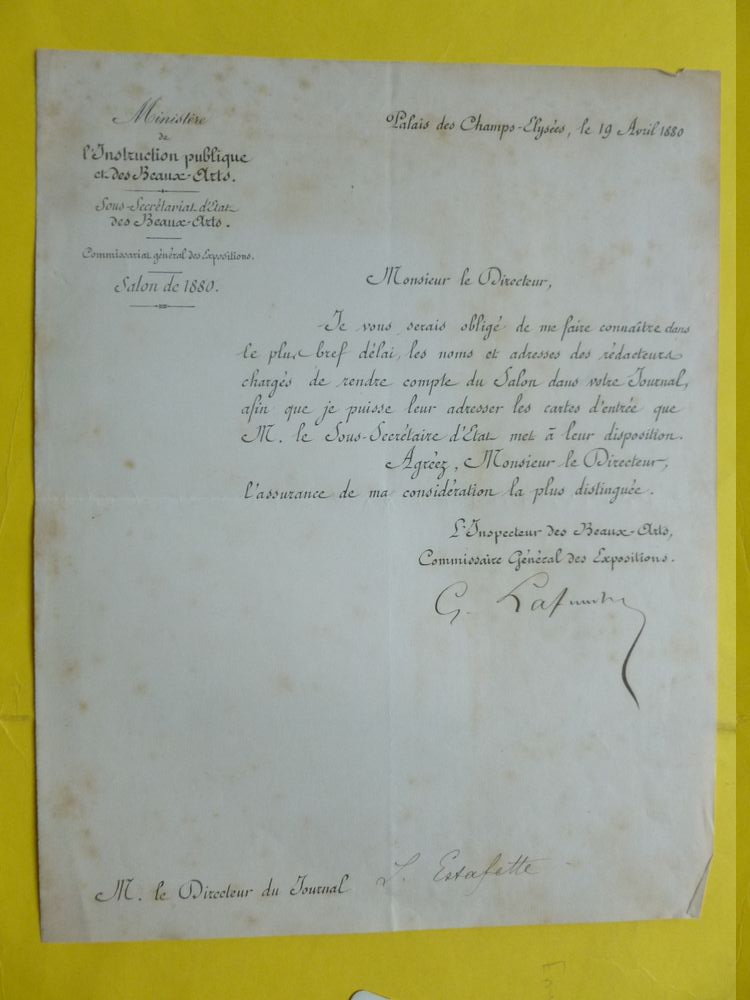 Ministère
de
l'Instruction publique
et des Beaux-Arts.
Sous-Secrétariat d'Etat
des Beaux-Arts.
Commissariat général des Expositions.
Salon de 1880.
Palais des Champs-Elysées, le 19 Avril 1880
Monsieur le Directeur,
Je vous serais obligé de me faire connaître dans
le plus bref délai, les noms et adresses des rédacteurs
chargés de rendre compte du Salon dans votre Journal,
afin que je puisse leur adresser les cartes d'entrée que
M. le Sous-Secrétaire d'Etat met à leur disposition.
Agréez, Monsieur le Directeur,
l'assurance de ma considération la plus distinguée.
L'Inspecteur des Beaux-Arts,
Commissaire Général des Expositions.
G. Lafenestre
M. le Directeur du Journal L'Estafette